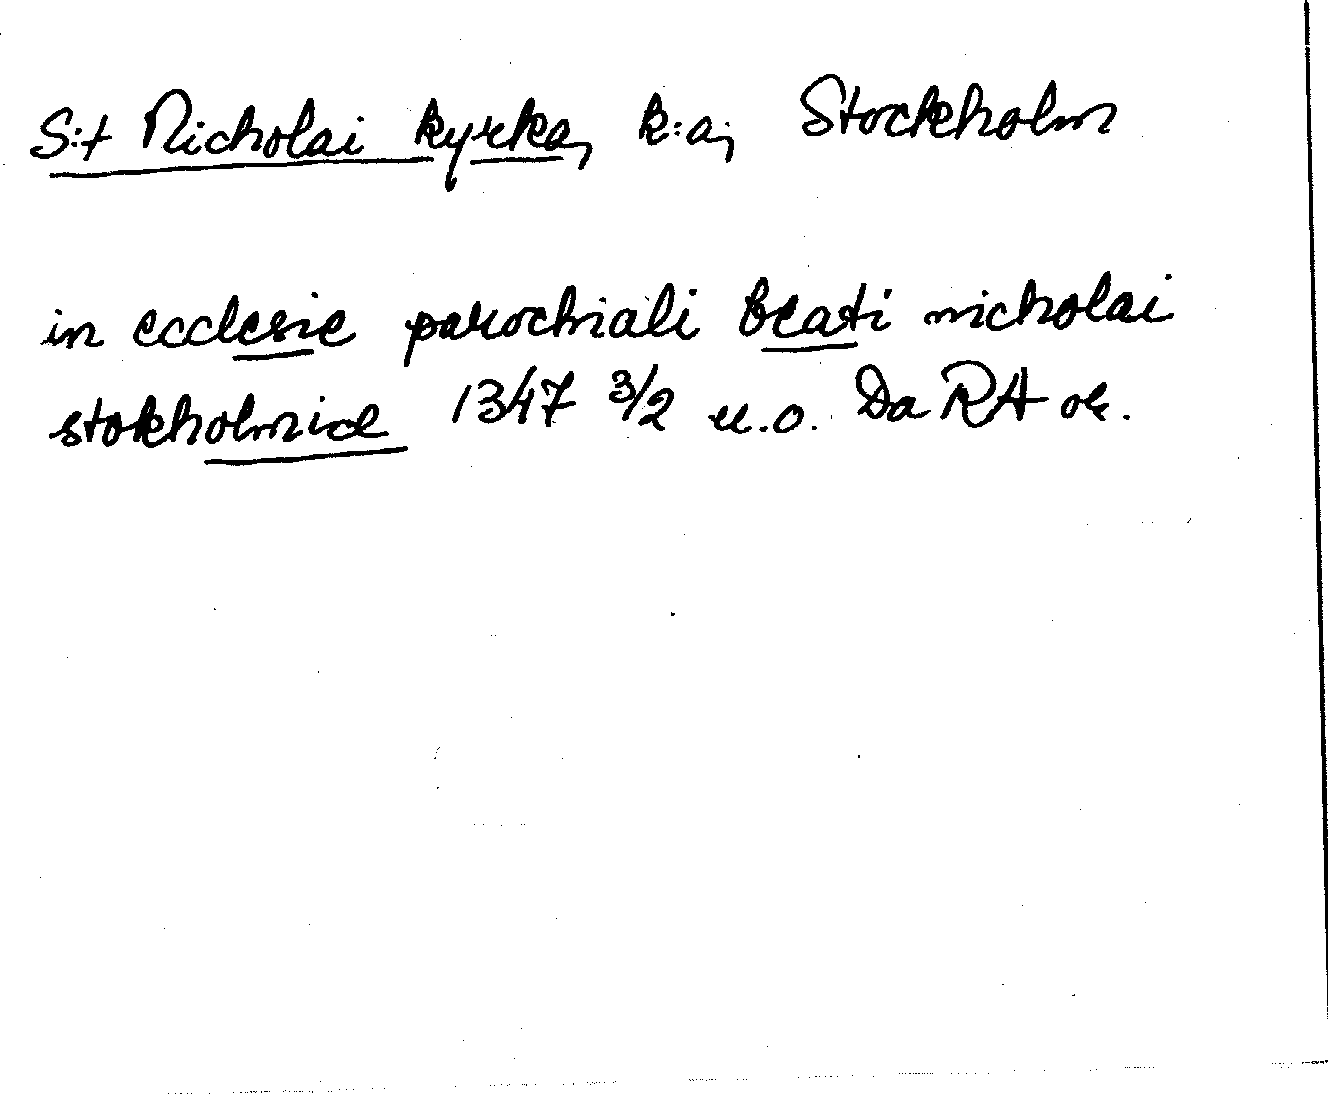 S:t Nicholai kyrka, k:a, Stockholm
in ecclesie parochiali beati nicholai
stokholmice 1347 3/2 u.o. Da RA or.